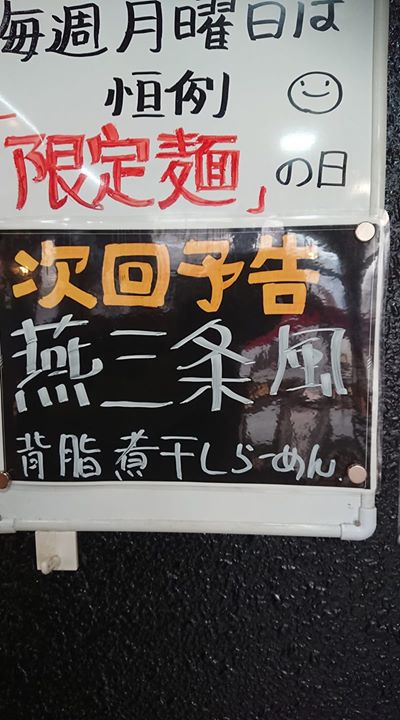 毎週月曜日は
恒例
「限定麺」の日
次回予告
燕三条風
背脂煮干しらーめん